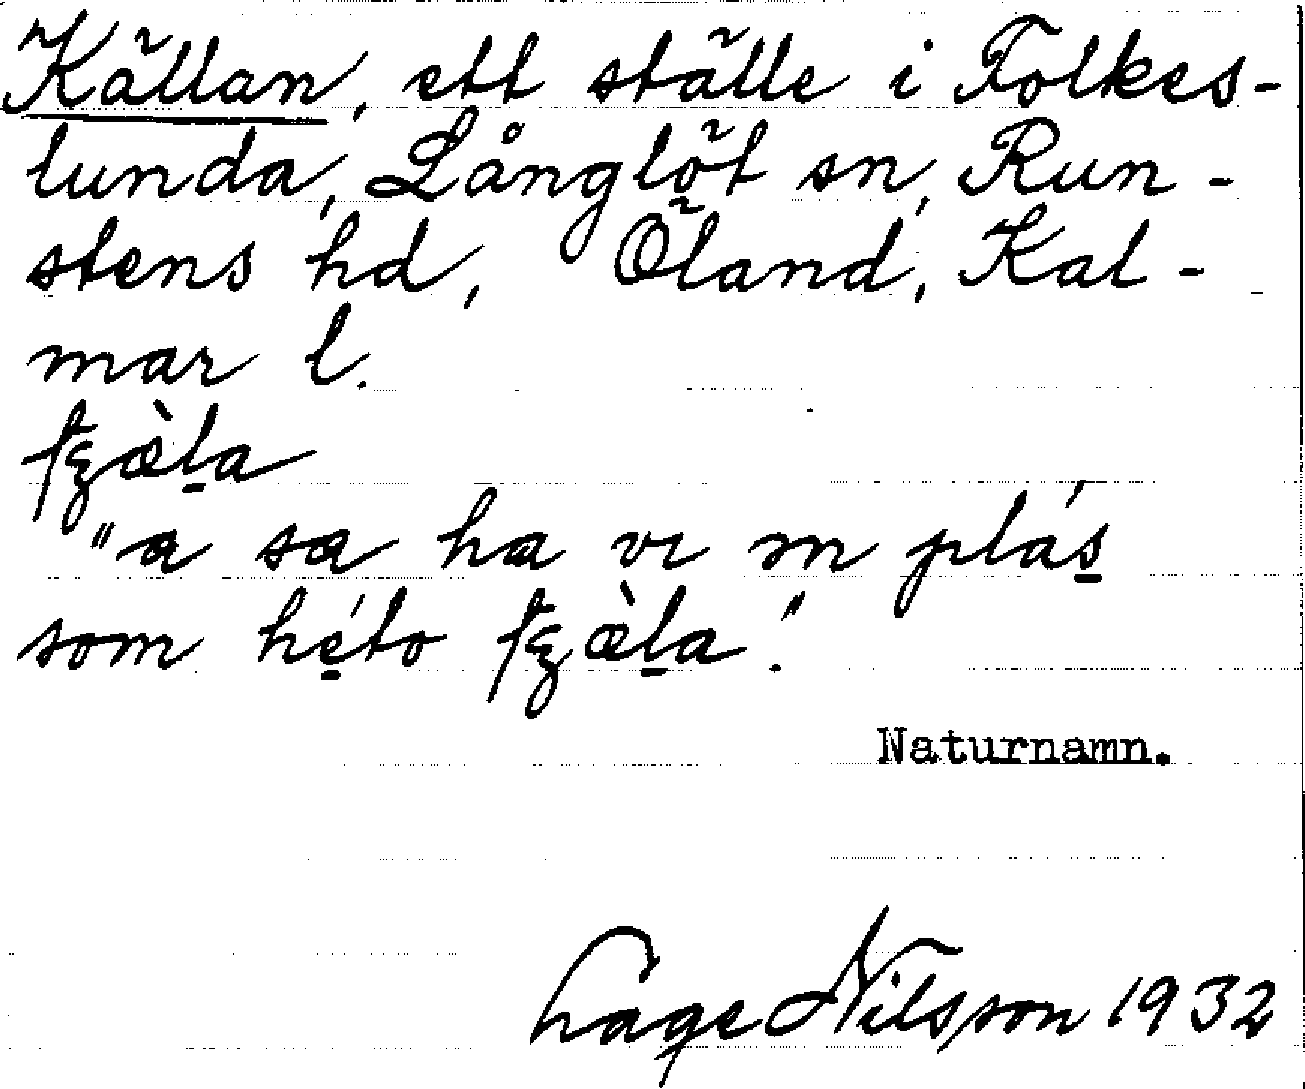 Källan, ett ställe i Folkes-
lunda, Långlöt sn, Run-
stens hd, Öland, Kal-
mar l.
"a sa ha vı m plás
som héto
Naturnamn.
Lage Nilsson 1932